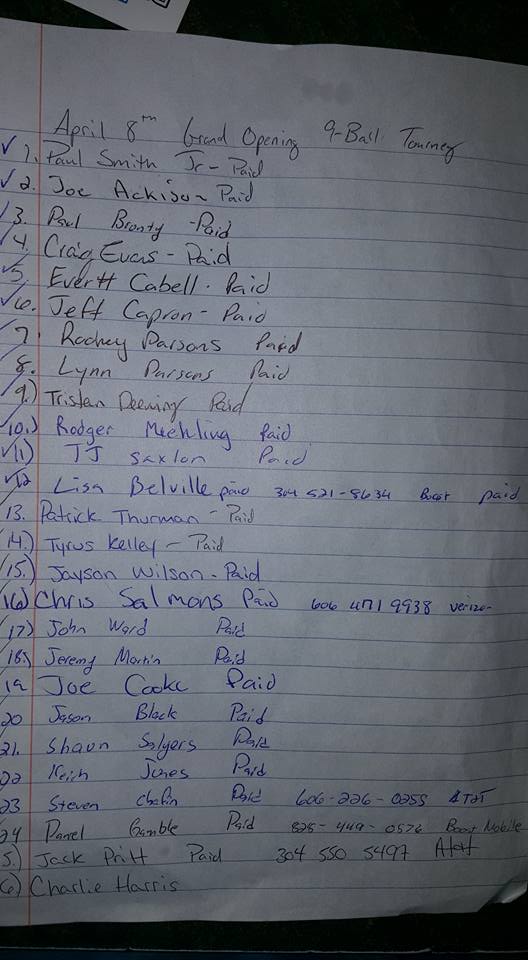 April 8th Grand Opening 9-Ball Tourney
✓ 1. Paul Smith Jr - Paid
✓ 2. Joe Ackison Paid
✓ 3. Paul Bronty - Paid
✓ 4. Craig Evans - Paid
✓ 5. Evertt Cabell. Paid
✓ 6. Jeff Capron - Paid
7. Rodney Parsons Paid
8. Lynn Parsons Paid
9.) Tristen Deeming Paid
10.) Rodger Meehling Paid
11) TJ Saxton Paid
12 Lisa Belville paid 304 521-8634 Boost paid
13. Patrick Thurman - Paid
14.) Tyrus Kelley - Paid
15.) Jayson Wilson - Paid
16) Chris Salmons Paid 606 471 9938 verizon
17) John Ward Paid
18.) Jeremy Martin Paid
19 Joe Cooke Paid
20 Jason Black Paid
21. Shaun Salyers Paid
22 Keich Jones Paid
23 Steven Chafin Paid 606-226-0255 AT&T
24 Gamble Paid 828-449-0576 Boost Mobile
5.) Jack Pritt Paid 304 550 5497 At&t
6) Charlie Harris